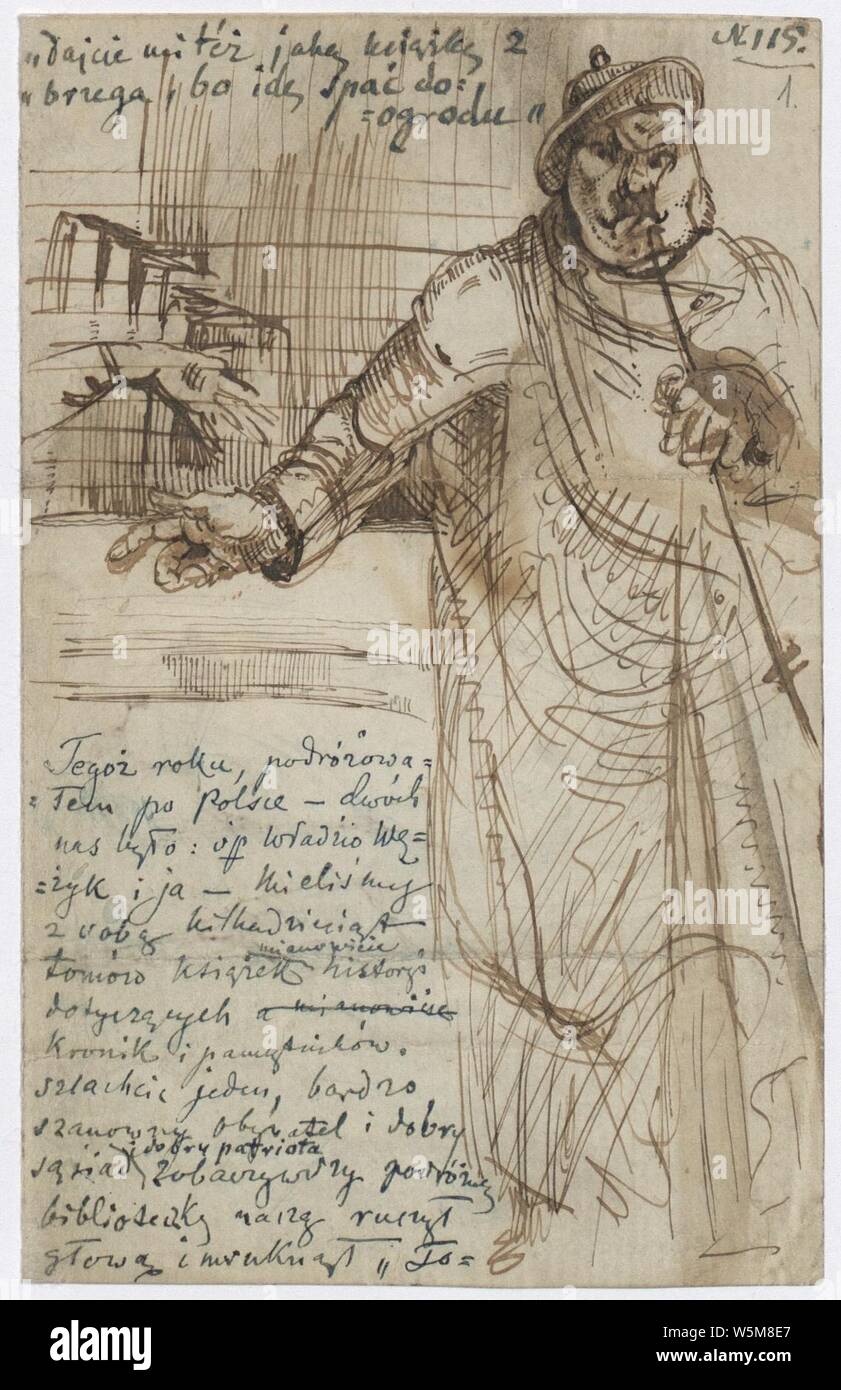 „dajcie mi też jaką książkę z
N. 115.
„brzega, bo idę spać do=
1.
=ogrodu"
Tegoż roku, podróżowa=
=łem po Polsce – dwóch
nas było: Władzio Wę=
=żyk i ja – mieliśmy
z sobą kilkadziesiąt
mianowicie
tomów książek history
dotyczących a mianowicie
kronik i pamiętników.
szlachcic jeden, bardzo
szanowny obywatel i dobry
i dobry patriota
sąsiad zobaczywszy podróżną
biblioteczkę naszą ruszył
głową i mruknął „To=
alamy
alamy
alamy
alamy
Image ID: W5M8E7
www.alamy.com